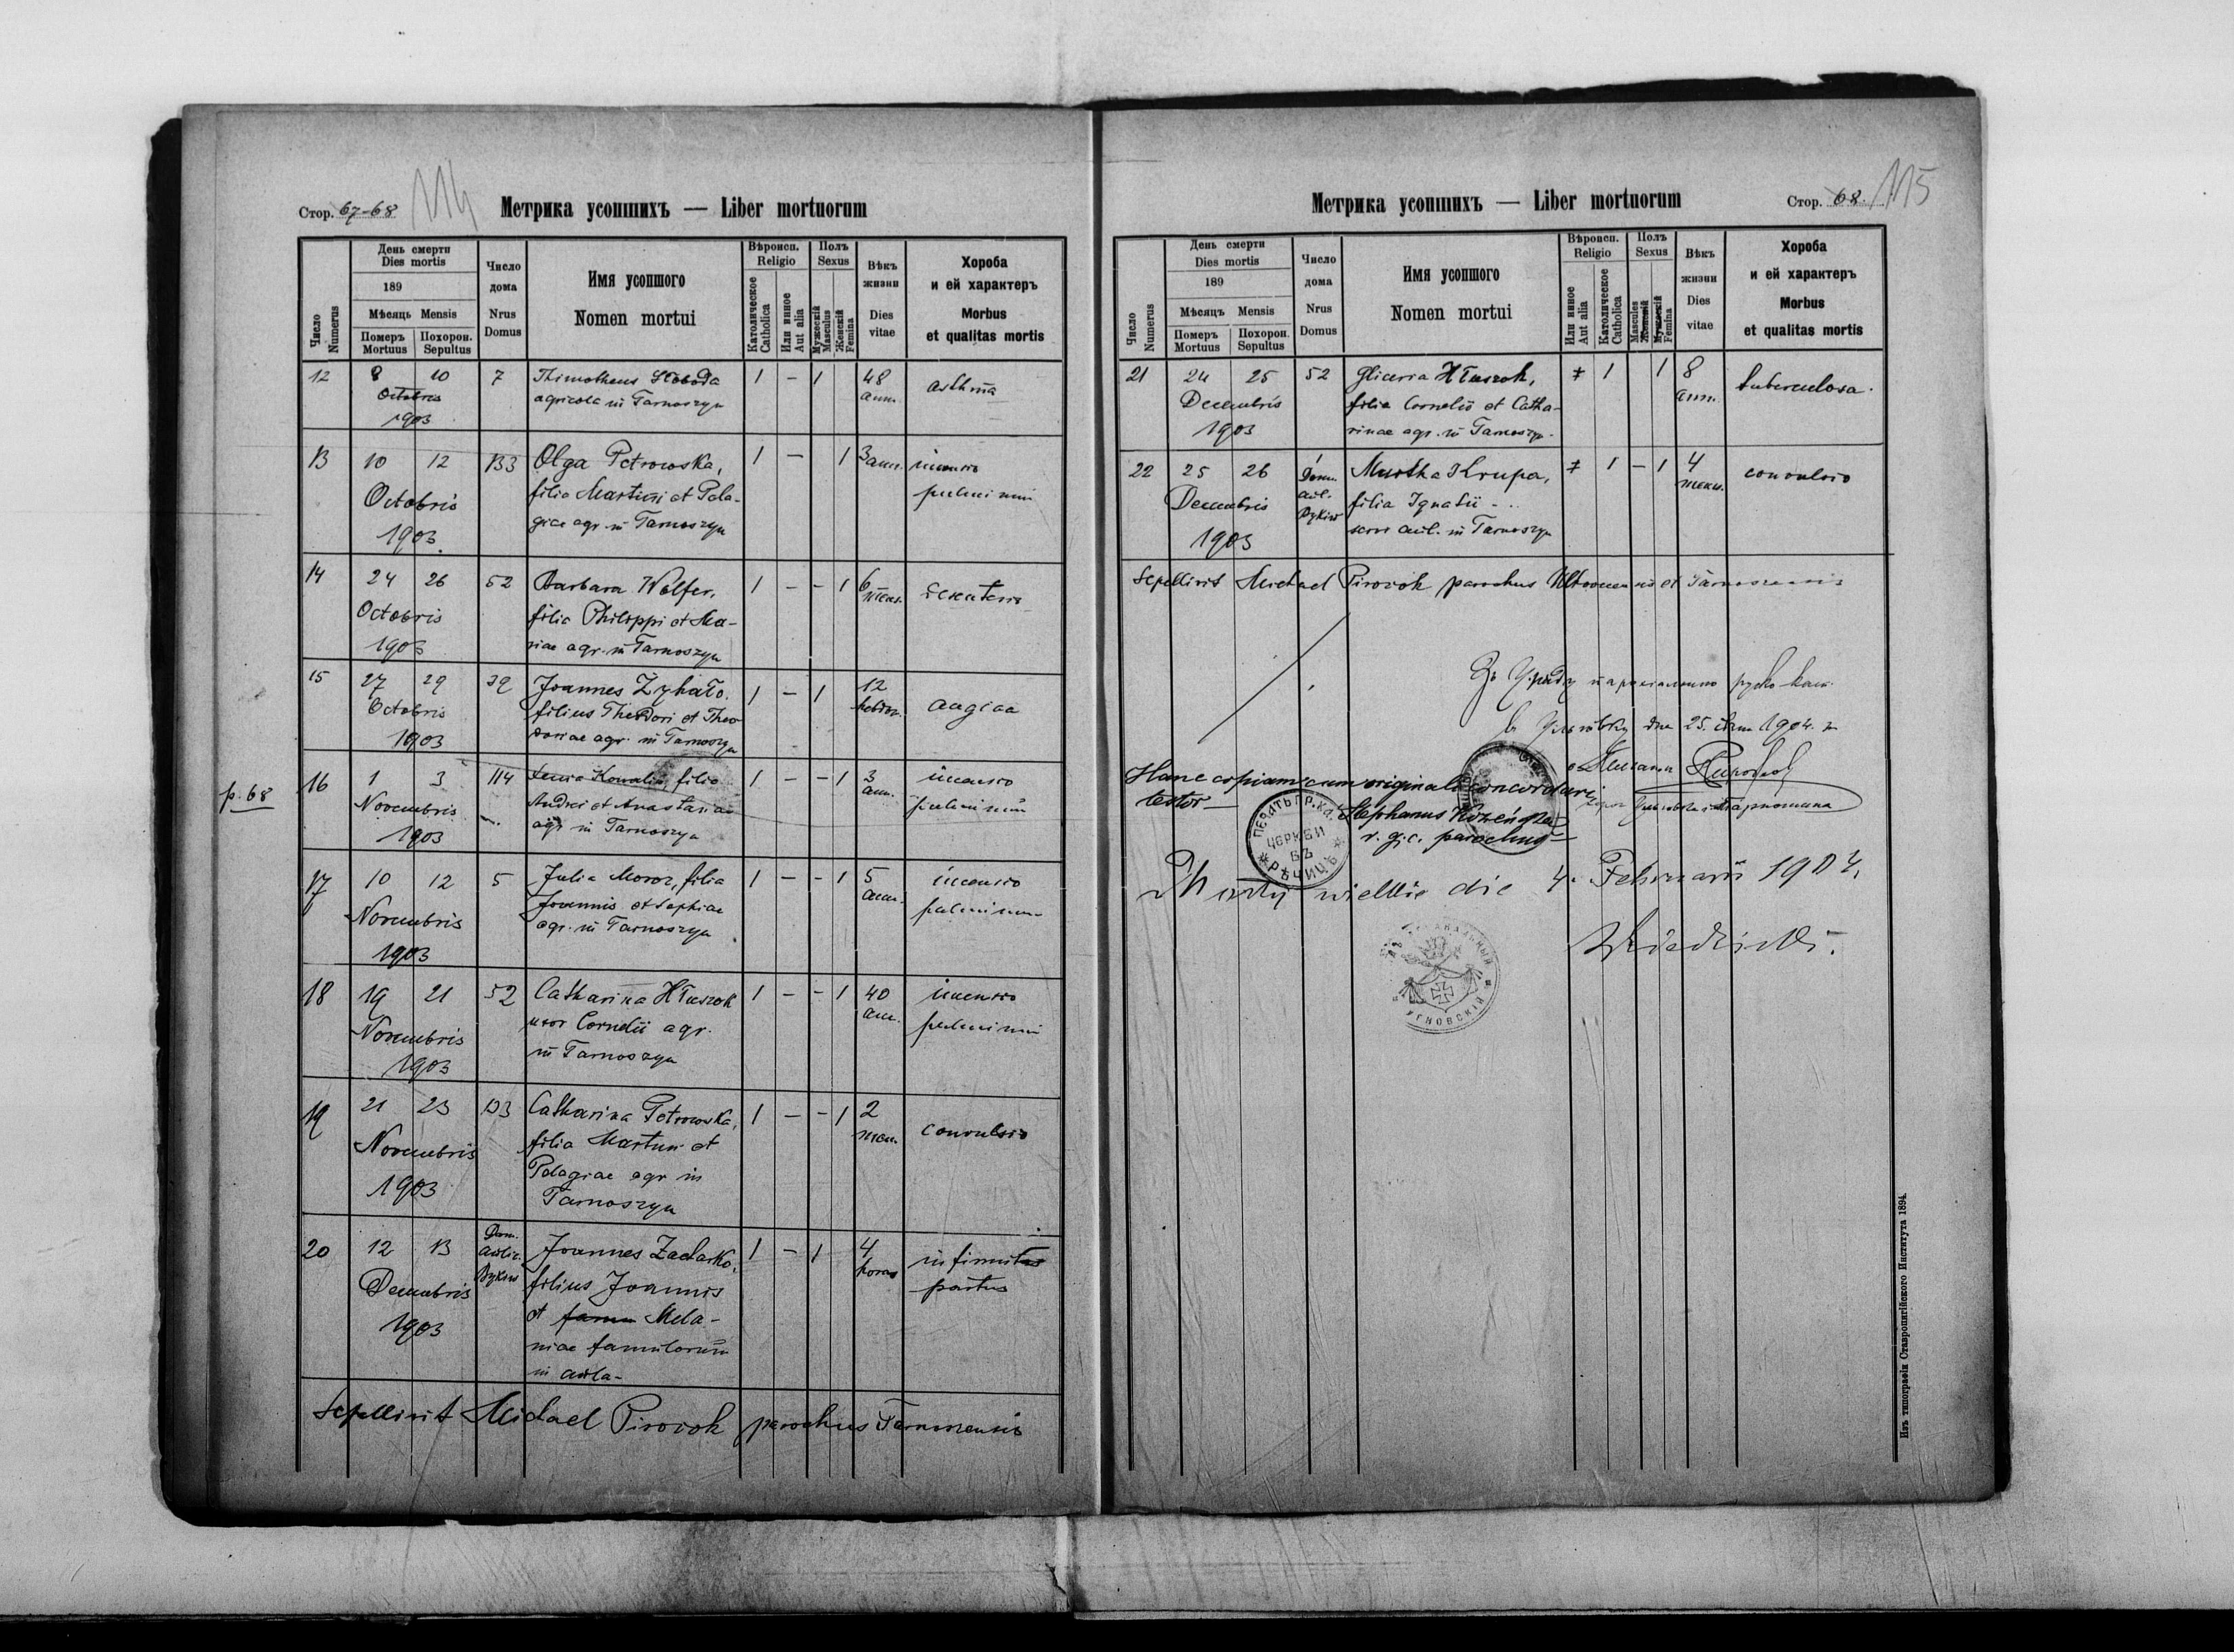 Стор. 67-68 114 Метрика усопшихъ — Liber mortuorum
Число Numerus
День смерти
Dies mortis
189
Мѣсяць Mensis
Померъ Mortuus
Похорон. Sepultus
Число дома
Nrus Domus
Имя усопшого
Nomen mortui
Вѣроисп.
Religio
Католическое Catholica
Или инное Aut alia
Полъ
Sexus
Мужескій Masculus
Женскій Femina
Вѣкъ жизни
Dies vitae
Хороба
и ей характеръ
Morbus
et qualitas mortis
12 8 10 7 Thimotheus Słoboda 1 — 1 48 asthma
Octobris agricola in Tarnoszyn ann.
1903
13 10 12 133 Olga Petrowska, 1 — 1 3 ann.
Octobris filia Martini et Pela-
1903 giae agr. in Tarnoszyn
14 24 26 52 Barbara Wolfer, 1 — — 1 6
Octobris filia Philippi et Ma- mens.
1903 riae agr. in Tarnoszyn
15 27 29 39 Joannes Zyhało. 1 — 1 12 angina
Octobris filius Theodori et Theo- hebdom.
1903 doriae agr. in Tarnoszyn
p. 68
16 1 3 114 Xenia Kowalis, filia 1 — — 1 3
Novembris Andrei et Anastasiae ann.
1903 agr. in Tarnoszyn
17 10 12 5 Julia Moroz, filia 1 — — 1 5
Novembris Joannis et Sophiae ann.
1903 agr. in Tarnoszyn
18 19 21 52 Catharina Hłuszok 1 — — 1 40
Novembris uxor Cornelii agr. ann.
1903 in Tarnoszyn
19 21 23 133 Catharina Petrowska, 1 — — 1 2 convulsio
Novembris filia Martini et men.
1903 Pelagiae agr in
Tarnoszyn
20 12 13 Dom. aulic. Dykiw Joannes Zadarko, 1 — 1 4 infirmitas
Decembris filius Joannis horas partus
1903 et Mela-
niae famulorum
in aula-
Sepelivit Michael Pirożok parochus Tarnoszensis
Метрика усопшихъ — Liber mortuorum Стор. 68. 115
Число Numerus
День смерти
Dies mortis
189
Мѣсяцъ Mensis
Померъ Mortuus
Похорон. Sepultus
Число дома
Nrus Domus
Имя усопшого
Nomen mortui
Вѣроисп.
Religio
Или инное Aut alia
Католическое Catholica
Полъ
Sexus
Mascules Женскій
Мужескій Femina
Вѣкъ жизни
Dies vitae
Хороба
и ей характеръ
Morbus
et qualitas mortis
21 24 25 52 Gliceria Hłuszok, 1 1 8 tuberculosa.
Decembris filia Cornelii et Catha- ann.
1903 rinae agr. in Tarnoszyn.
22 25 26 Dom. aul. Dykiw Martha Krupa, 1 — 1 4 convulsio
Decembris filia Ignatii mens.
1903 serv. aul. in Tarnoszyn
Sepelivit Michael Pirożok parochus et Tarnoszensis
дня 25. 1904.
Hanc copiam cum originali concordari
testor—
Stephanus
r. g. c. parochus
ПЕЧАТЬ ГР. КА.
ЦЕРКВИ
ВЪ
РѢЧИЦѢ
Mosty wielkie die 4. Februarii 1904.
УГНОВСКІЙ
Изъ типографіи Ставропигійского Института 1894.